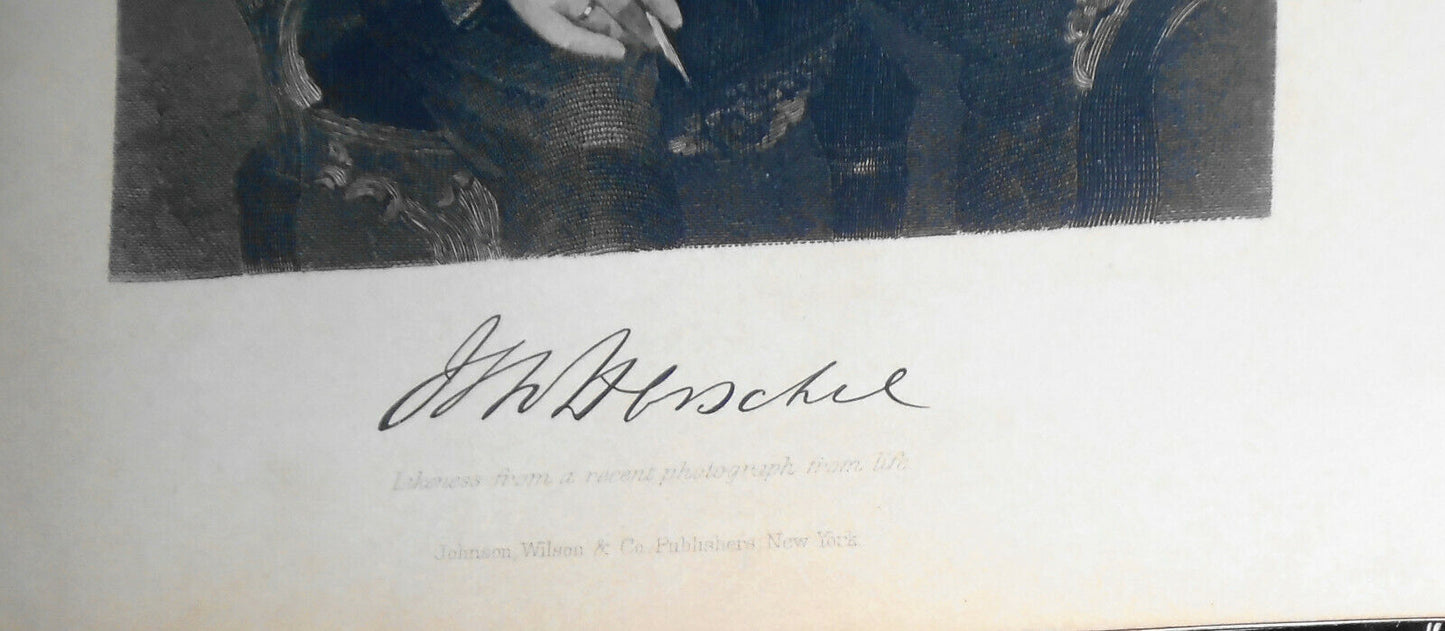 JFW Herschel
Likeness from a recent photograph from life.
Johnson, Wilson & Co. Publishers, New York